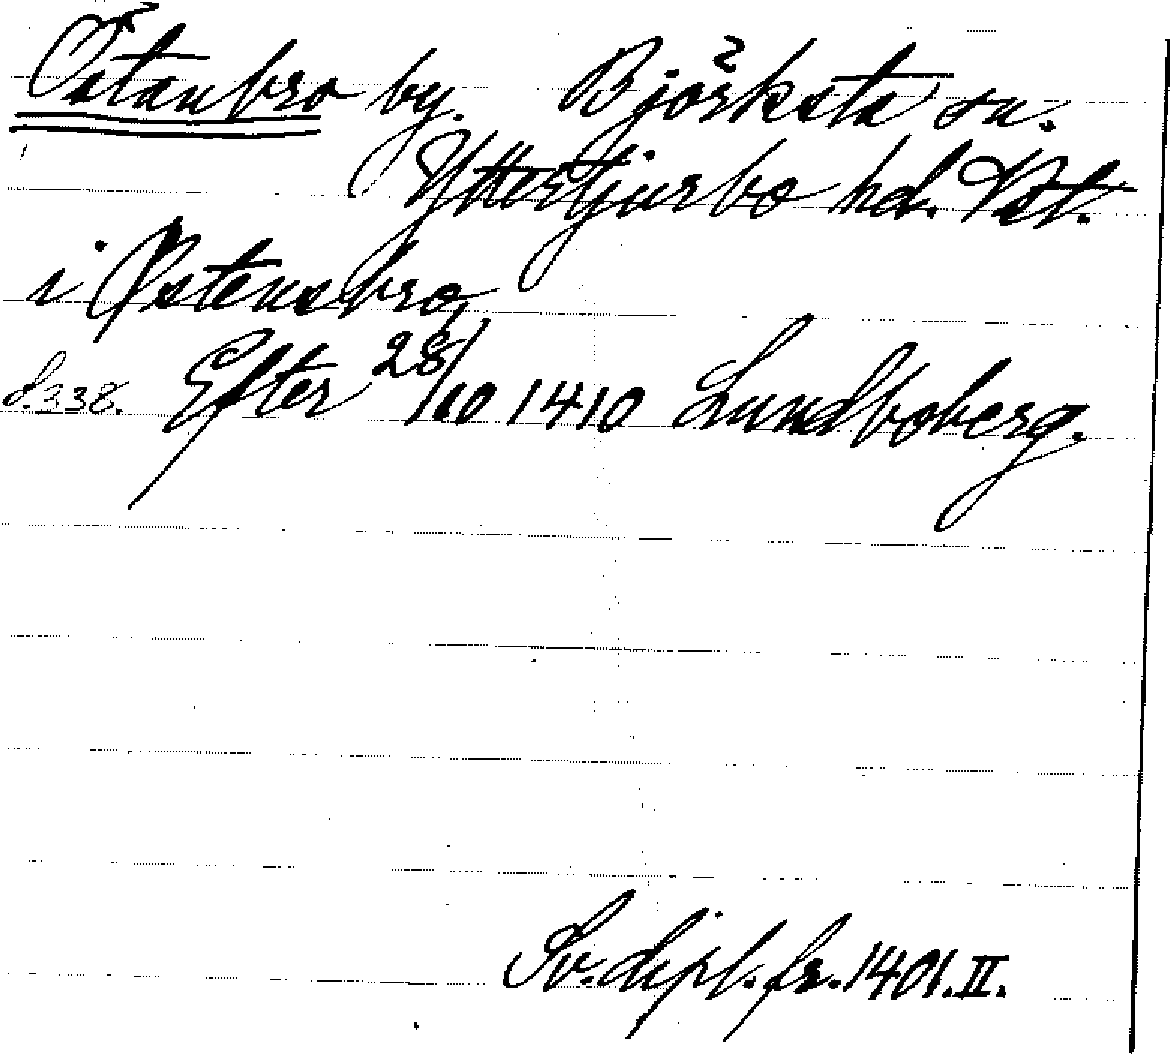 Östanbro by. Björksta sn.
Yttertjurbo hd. Vstl.
i Østensbro
S. 338. Efter 28/10 1410 Lundboberg.
Sv. dipl. fr. 1401. II.